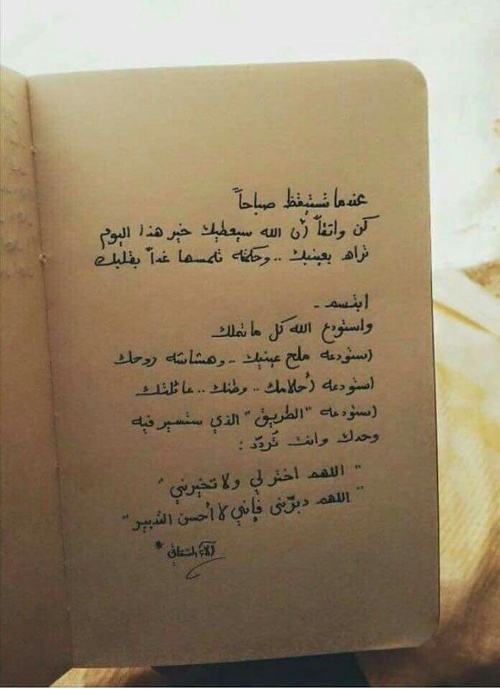 عندما تستيقظ صباحاً
كن واثقاً أن الله سيعطيك خير هذا اليوم
تراه بعينيك .. وحكمته تلمسها غداً بقلبك
ابتسم -
واستودع الله كل ما تملك
استودعه ملح عينيك .. وهشاشة روحك
استودعه أحلامك .. وطنك .. عائلتك
استودعه "الطريق" الذي ستسير فيه
وحدك وانت تُردّد :
" اللهم اختر لي ولا تخيرني "
" اللهم دبّرني فإنني لا أحسن التدبير "